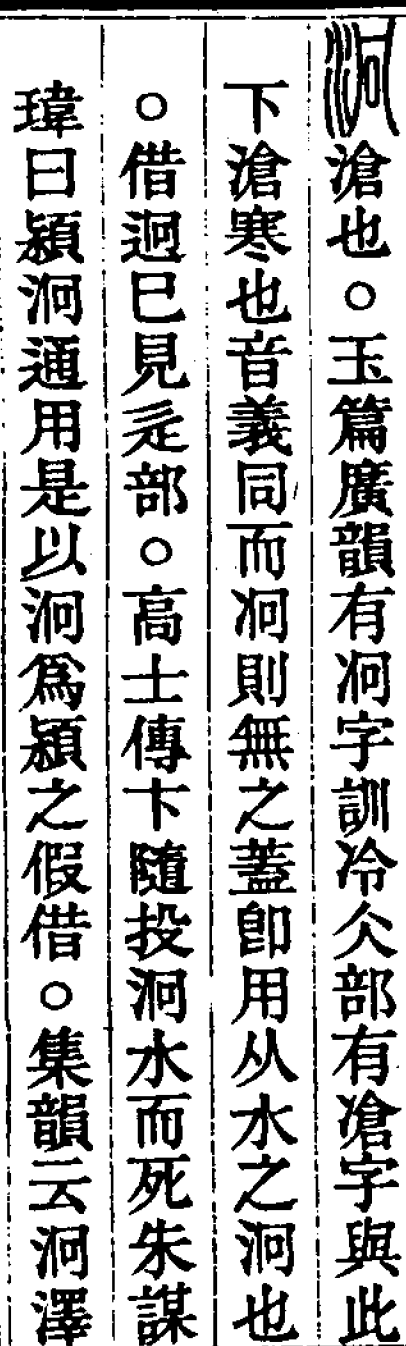 泂滄也○玉篇廣韻有㓏字訓冷仌部有凔字與此
下滄寒也音義同而㓏則無之蓋卽用从水之泂也
○借迥巳見辵部○高士傳卞隨投泂水而死朱謀
㙔曰潁泂通用是以泂爲潁之假借○集韻云泂澤